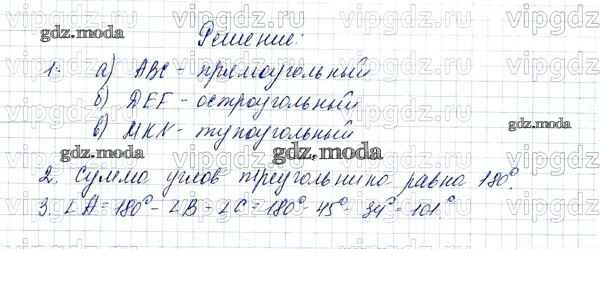 vipgdz.ru vipgdz.ru vipgdz.ru
gdz.moda
Решение:
1. а) ABC - прямоугольный
б) DEF - остроугольный
в) MKN - тупоугольный
gdz.moda
gdz.moda
gdz.moda
2. Сумма углов треугольника равна 180°.
3. ∠A = 180° - ∠B - ∠C = 180° - 45° - 34° = 101°.